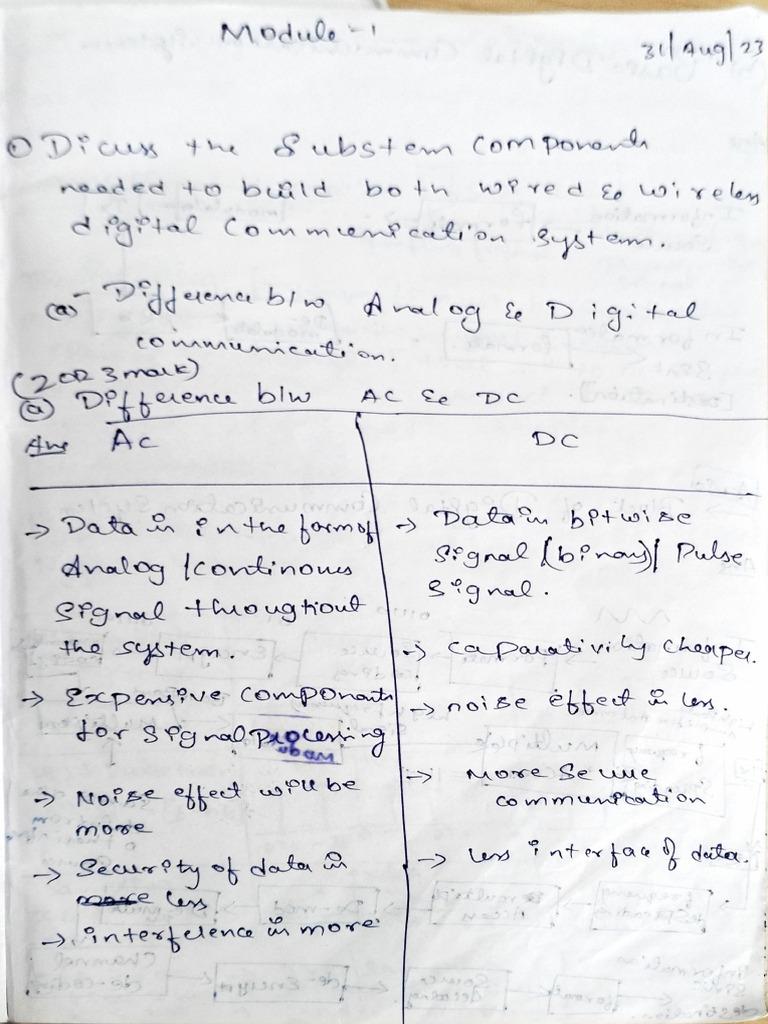 Module - 1
31/Aug/23
① Dicuss the Substem components
needed to build both wired & wireless
digital Communication System.
(a) - Difference b/w Analog & Digital
communication.
(2 OR 3 mark)
(a) Difference b/w AC & DC
Ans AC
DC
→ Data is in the form of
Analog / continous
Signal throughout
the system.
→ Expensive components
for signal processing
→ Noise effect will be
more
→ Security of data is
more less
→ interference is more
→ Data in bitwise
Signal (binary) / Pulse
Signal.
→ caparativily cheaper.
→ noise effect is less.
→ More Secure
communication
→ less interface of data.